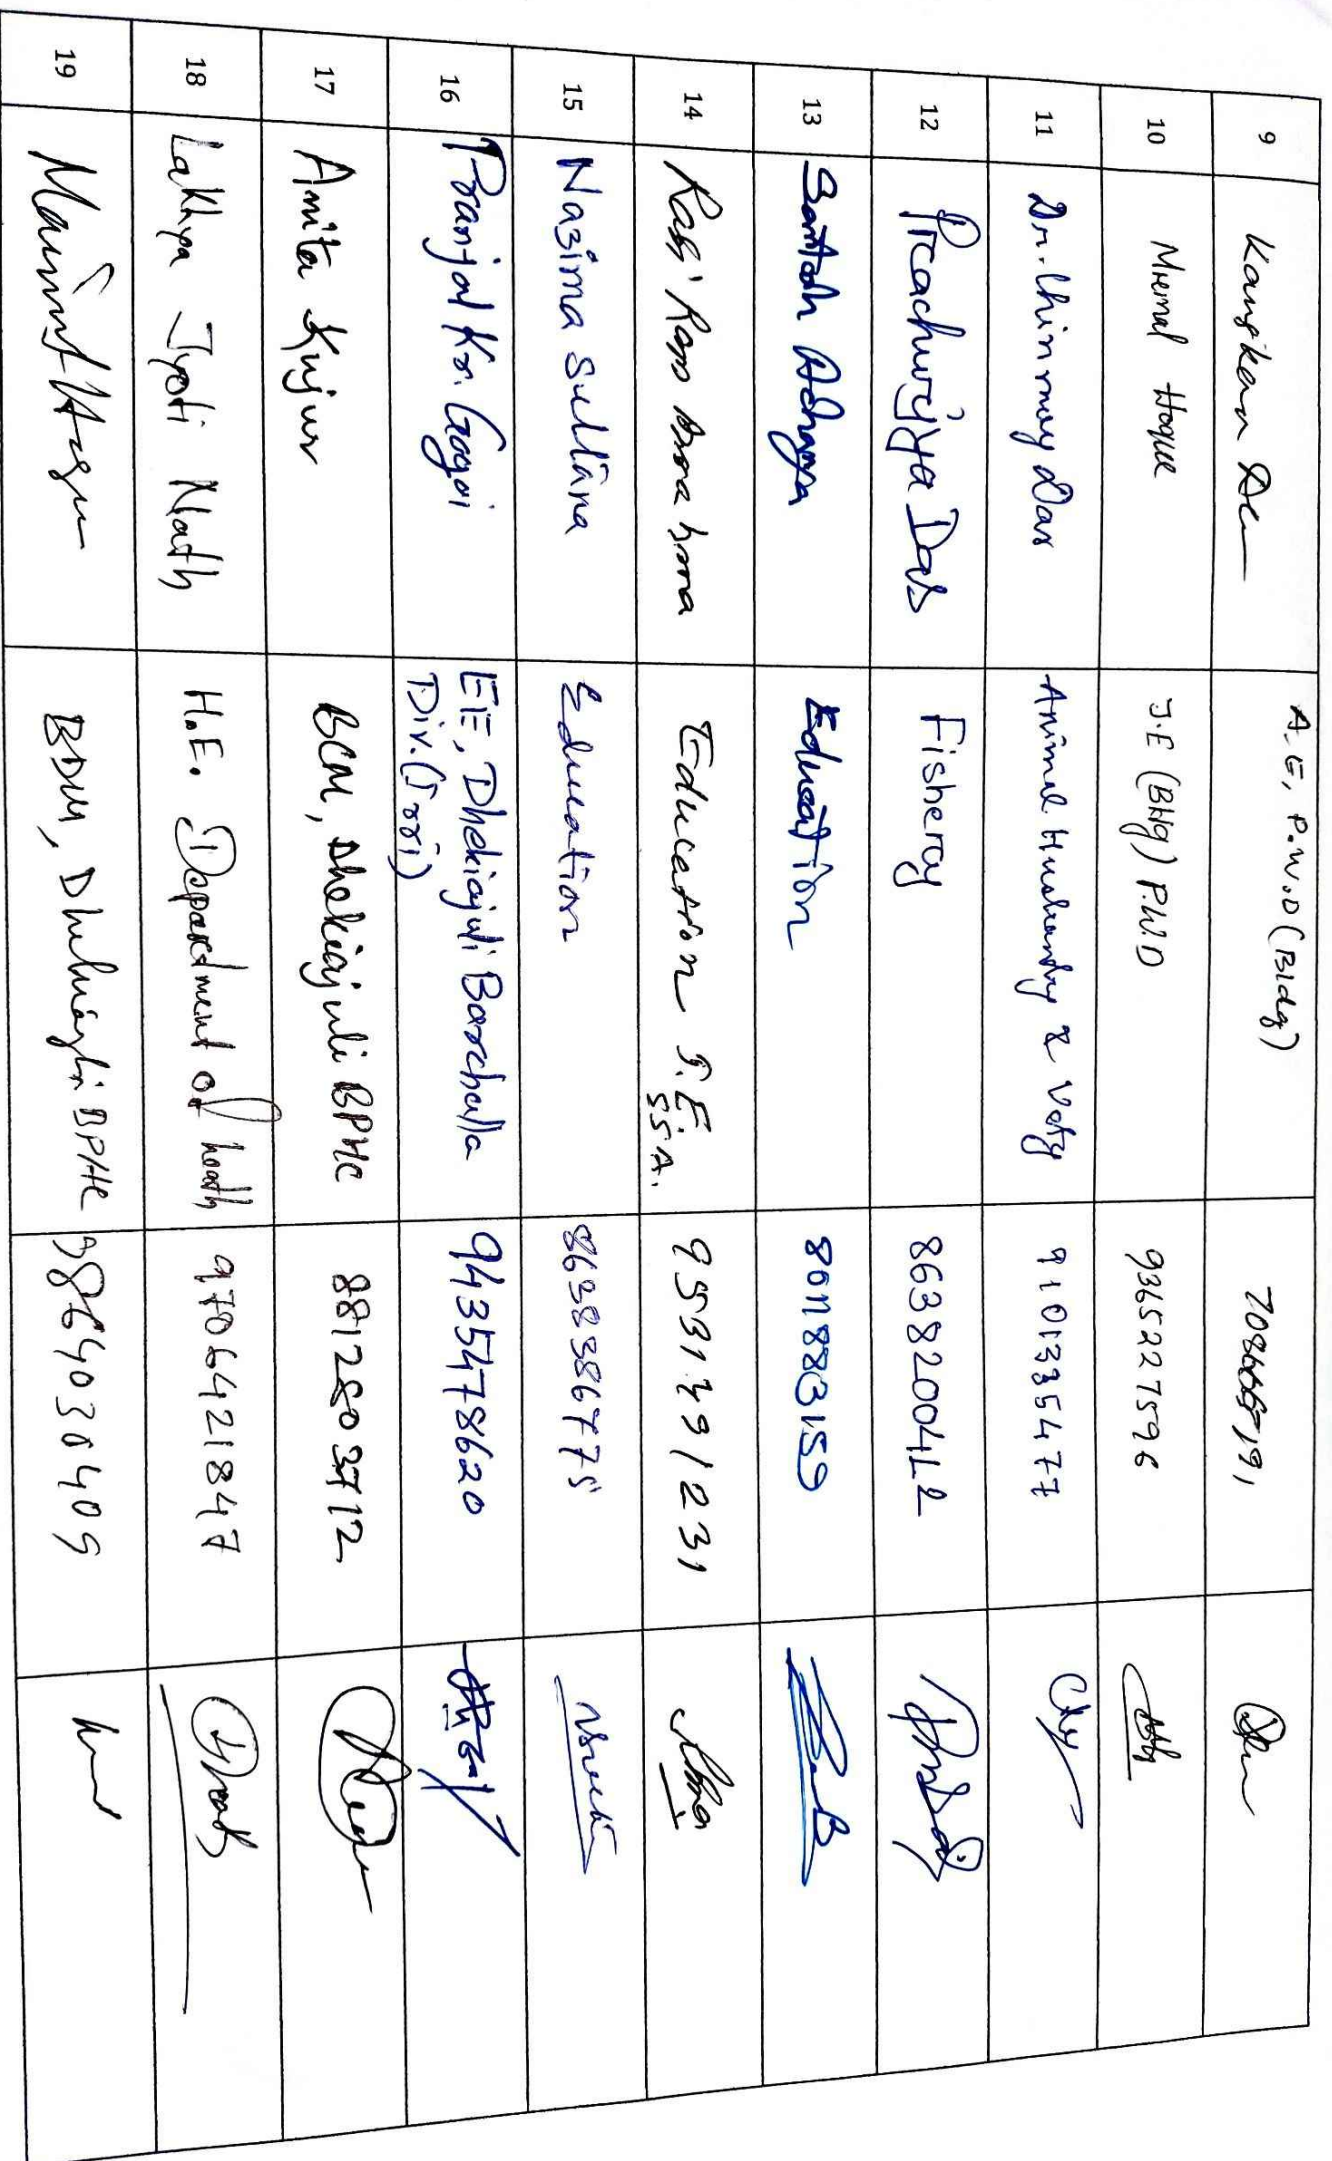 9 Kangkan De A.E, P.W.D (Bldg)
10 Mremal Hoque J.E (Bldg) P.W.D 9365227596
11 Dr. Chinmoy Das Animal Husbandry & Vety 9101335477
12 Prachurjya Das Fisheray 8638200412
13 Santosh Acharya Education 8011883159
14 Education J.E. 95531491231
SSA.
15 Nazima Sultana Education 8638386775
16 Pranjal Kr. Gogoi EE, Dhekiajuli Barchalla 9435478620
Div. (Irri)
17 Amita Kujur BCM, Dhekiajuli BPHC 8812803712
18 Lakhya Jyoti Nath H.E. Department of heath 9706421847
19 BDM, Dhekiajuli BPHC